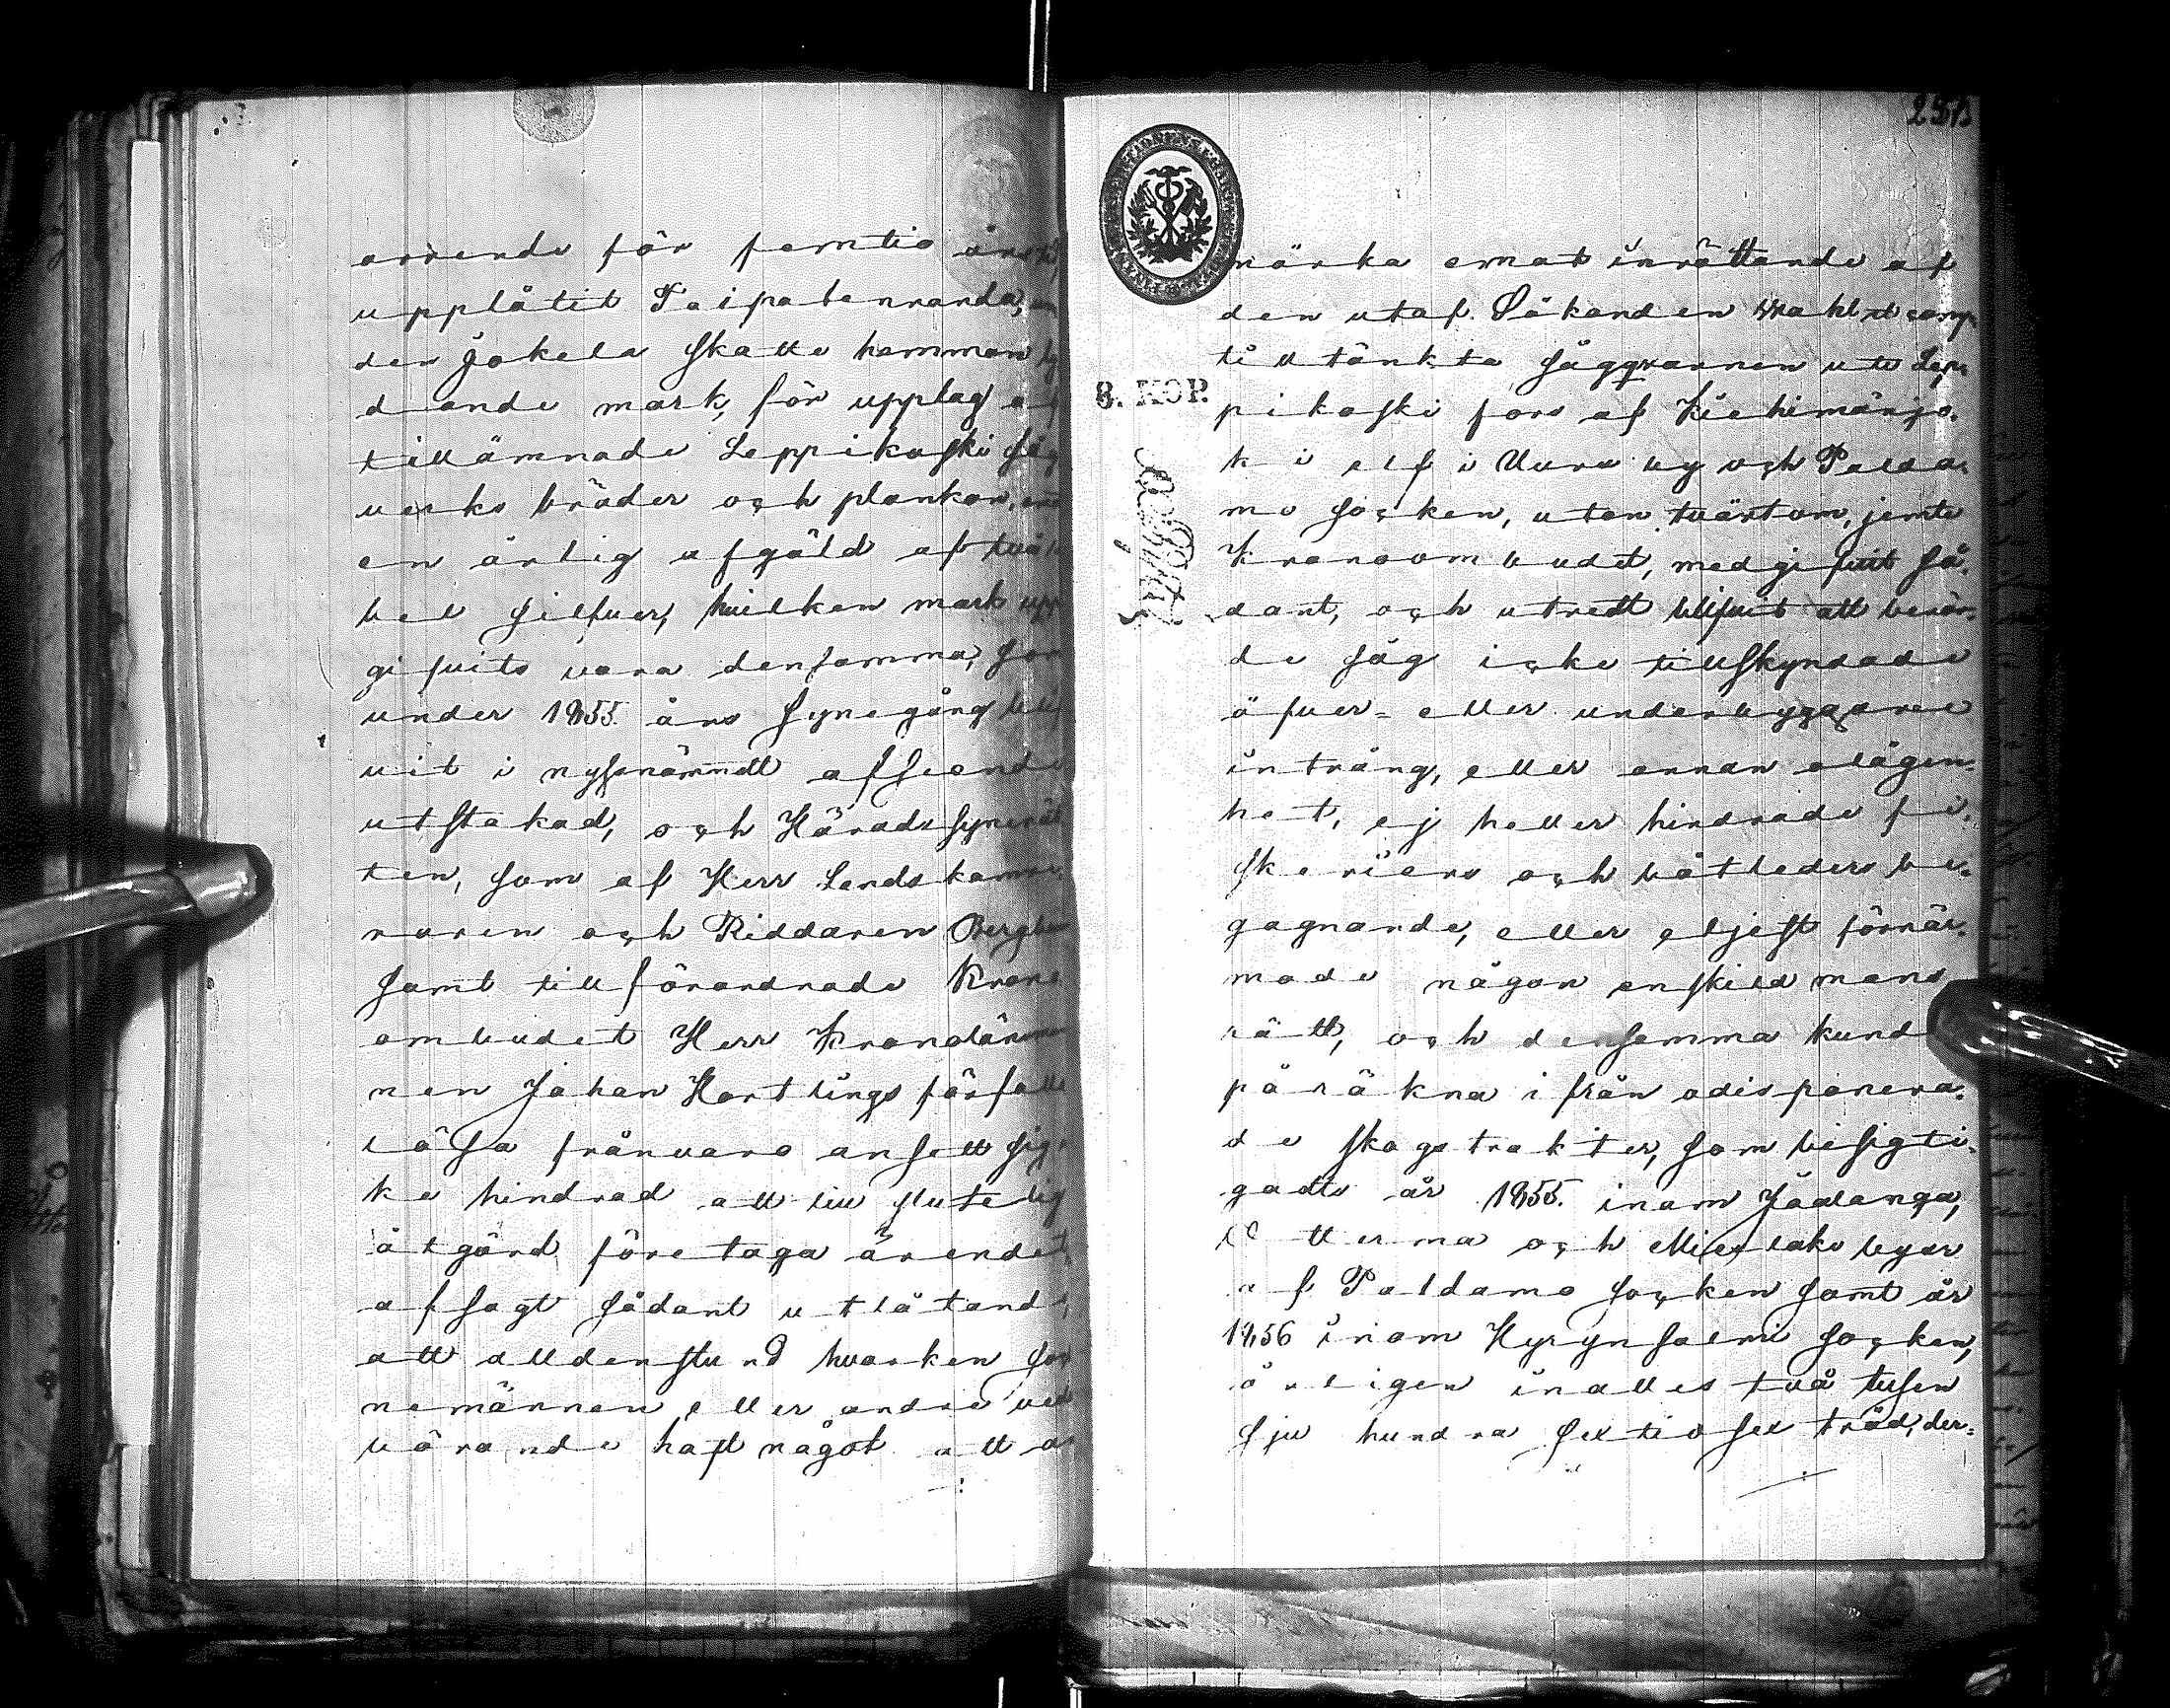 arrende för femtio års
upplåtit Taipalenranda,
der Jokela skatte hemman ly
dande mark, för upplag af
tillämnade Leppikoski såg
verks bräder och plankor,
en årlig afgäld af två
bel silfver, hvilken mark upp
gifvits vara densamma, som
under 1855. års synegång blif
vit i nyssnämndt afseende
utstakad, och Härads synerät
ten, som af Herr Landskamre.
raren och Riddaren Bergbom
samt tillförordnade Krono
ombudet Herr Kronolänsman
nen Johan Hartlings förfalls
lösa frånvaro ansett sig
ke hindrad att till slutelig
åtgärd företaga ärendet,
afsagt sådant utlåtande,
att alldenstund hvarken
nemännen eller andre ved
börande haft något att
258
märka emot inrättande af
den utaf Sökanden Wahl et comp.
tilltänkta sågqvarnen uti Lep.
pikoski fors af Kiehimänjo.
ki elf i Uura by och Palda.
mo socken, utan tvärtom, jemte
Kronoombudet, medgifvit så.
dant, och utredt blifvit att berör.
de såg icke tillskyndade
öfver- eller underbyggare
intrång, eller annan olägen.
het, ej heller hindrade fi.
skeriers och båtleders be.
gagnande, eller eljest förnär.
made någon enskild mans
rätt, och densamma kund
påräkna ifrån odisponera.
de skogstrakter, som besigti.
gadts år 1855. inom Jaalanga,
Utterma och Mieslaks byar
af Paldamo socken samt år
1856 inom Hyrynsalmi socken,
årligen inalles två tusen
sju hundra sextiosex träd, der=
8. KOP.